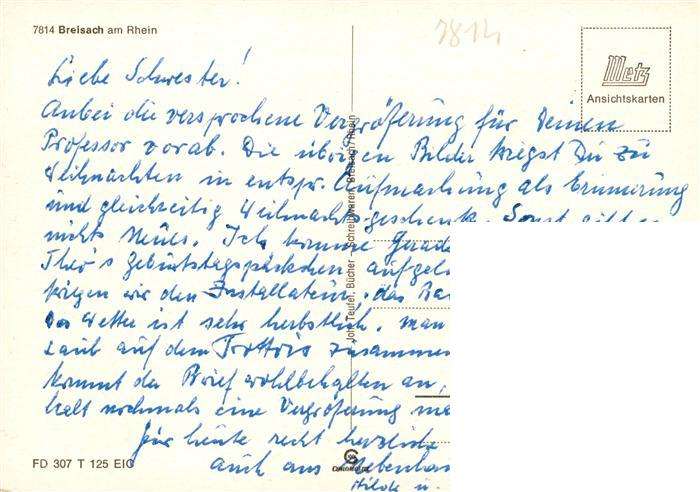 7814 Breisach am Rhein
7814
Metz
Ansichtskarten
Liebe Schwester!
Anbei die versprochene Vergrößerung für Deinen
Professor vorab. Die übrigen Bilder kriegst Du zu
Weihnachten in entspr. Aufmachung als Erinnerung
und gleichzeitig Weihnachtsgeschenk. Sonst gibt es
nichts Neues. Ich komme gerade
Theo's Geburtstagspäckchen
kriegen wir den Installateur, das
Das Wetter ist sehr herbstlich. Man
Laub auf dem Trottoir zusammen
kommt der Brief wohlbehalten an,
halt nochmals eine Vergrößerung
Für heute recht herzliche
auch aus
Hilde u.
Joh. Teufel, Bücher - Schreibwaren, Breisach/Rhein
FD 307 T 125 EIC